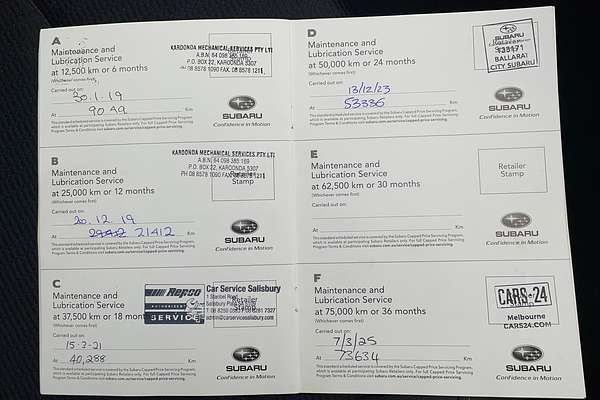 A
Maintenance and
Lubrication Service
at 12,500 km or 6 months
(Whichever comes first)
KAROONDA MECHANICAL SERVICES PTY LTD
A.B.N. 64 098 385 169
P.O. BOX 22, KAROONDA 5307
PH 08 8578 1090 FAX. 08 8578 1211
Carried out on:
30.1.19
At 9099 Km
SUBARU
Confidence in Motion
This standard scheduled service is covered by the Subaru Capped Price Servicing Program,
which is available at participating Subaru Retailers only. For full Capped Price Servicing
Program Terms & Conditions visit subaru.com.au/service/capped-price-servicing.
B
Maintenance and
Lubrication Service
at 25,000 km or 12 months
(Whichever comes first)
KAROONDA MECHANICAL SERVICES PTY LTD
A.B.N. 64 098 385 169
P.O. BOX 22, KAROONDA 5307
PH 08 8578 1090 FAX. 08 8578 1211
Retailer
Stamp
Carried out on:
20.12.19
At 21412 Km
SUBARU
Confidence in Motion
This standard scheduled service is covered by the Subaru Capped Price Servicing Program,
which is available at participating Subaru Retailers only. For full Capped Price Servicing
Program Terms & Conditions visit subaru.com.au/service/capped-price-servicing.
C
Maintenance and
Lubrication Service
at 37,500 km or 18 months
(Whichever comes first)
Repco
AUTHORISED
SERVICE
Car Service Salisbury
Retailer
Carried out on:
15.2.21
At 40,288 Km
SUBARU
Confidence in Motion
This standard scheduled service is covered by the Subaru Capped Price Servicing Program,
which is available at participating Subaru Retailers only. For full Capped Price Servicing
Program Terms & Conditions visit subaru.com.au/service/capped-price-servicing.
D
Maintenance and
Lubrication Service
at 50,000 km or 24 months
(Whichever comes first)
SUBARU
BALLARAT
CITY SUBARU
Carried out on:
13/12/23
At 53386 Km
SUBARU
Confidence in Motion
This standard scheduled service is covered by the Subaru Capped Price Servicing Program,
which is available at participating Subaru Retailers only. For full Capped Price Servicing
Program Terms & Conditions visit subaru.com.au/service/capped-price-servicing.
E
Maintenance and
Lubrication Service
at 62,500 km or 30 months
(Whichever comes first)
Retailer
Stamp
Carried out on:
At Km
SUBARU
Confidence in Motion
This standard scheduled service is covered by the Subaru Capped Price Servicing Program,
which is available at participating Subaru Retailers only. For full Capped Price Servicing
Program Terms & Conditions visit subaru.com.au/service/capped-price-servicing.
F
Maintenance and
Lubrication Service
at 75,000 km or 36 months
(Whichever comes first)
CARS24
Melbourne
CARS24.COM
Carried out on:
7/3/25
At 73634 Km
SUBARU
Confidence in Motion
This standard scheduled service is covered by the Subaru Capped Price Servicing Program,
which is available at participating Subaru Retailers only. For full Capped Price Servicing
Program Terms & Conditions visit subaru.com.au/service/capped-price-servicing.